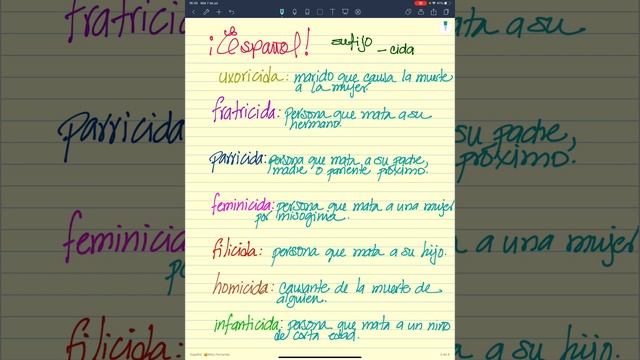 ¡Español! sufijo - cida
uxoricida: marido que causa la muerte
a la mujer.
fratricida: persona que mata a su
hermano.
parricida: persona que mata a su padre,
madre o pariente próximo.
feminicida: persona que mata a una mujer
por misoginia.
filicida: persona que mata a su hijo.
homicida: causante de la muerte de
alguien.
infanticida: persona que mata a un niño
de corta edad.